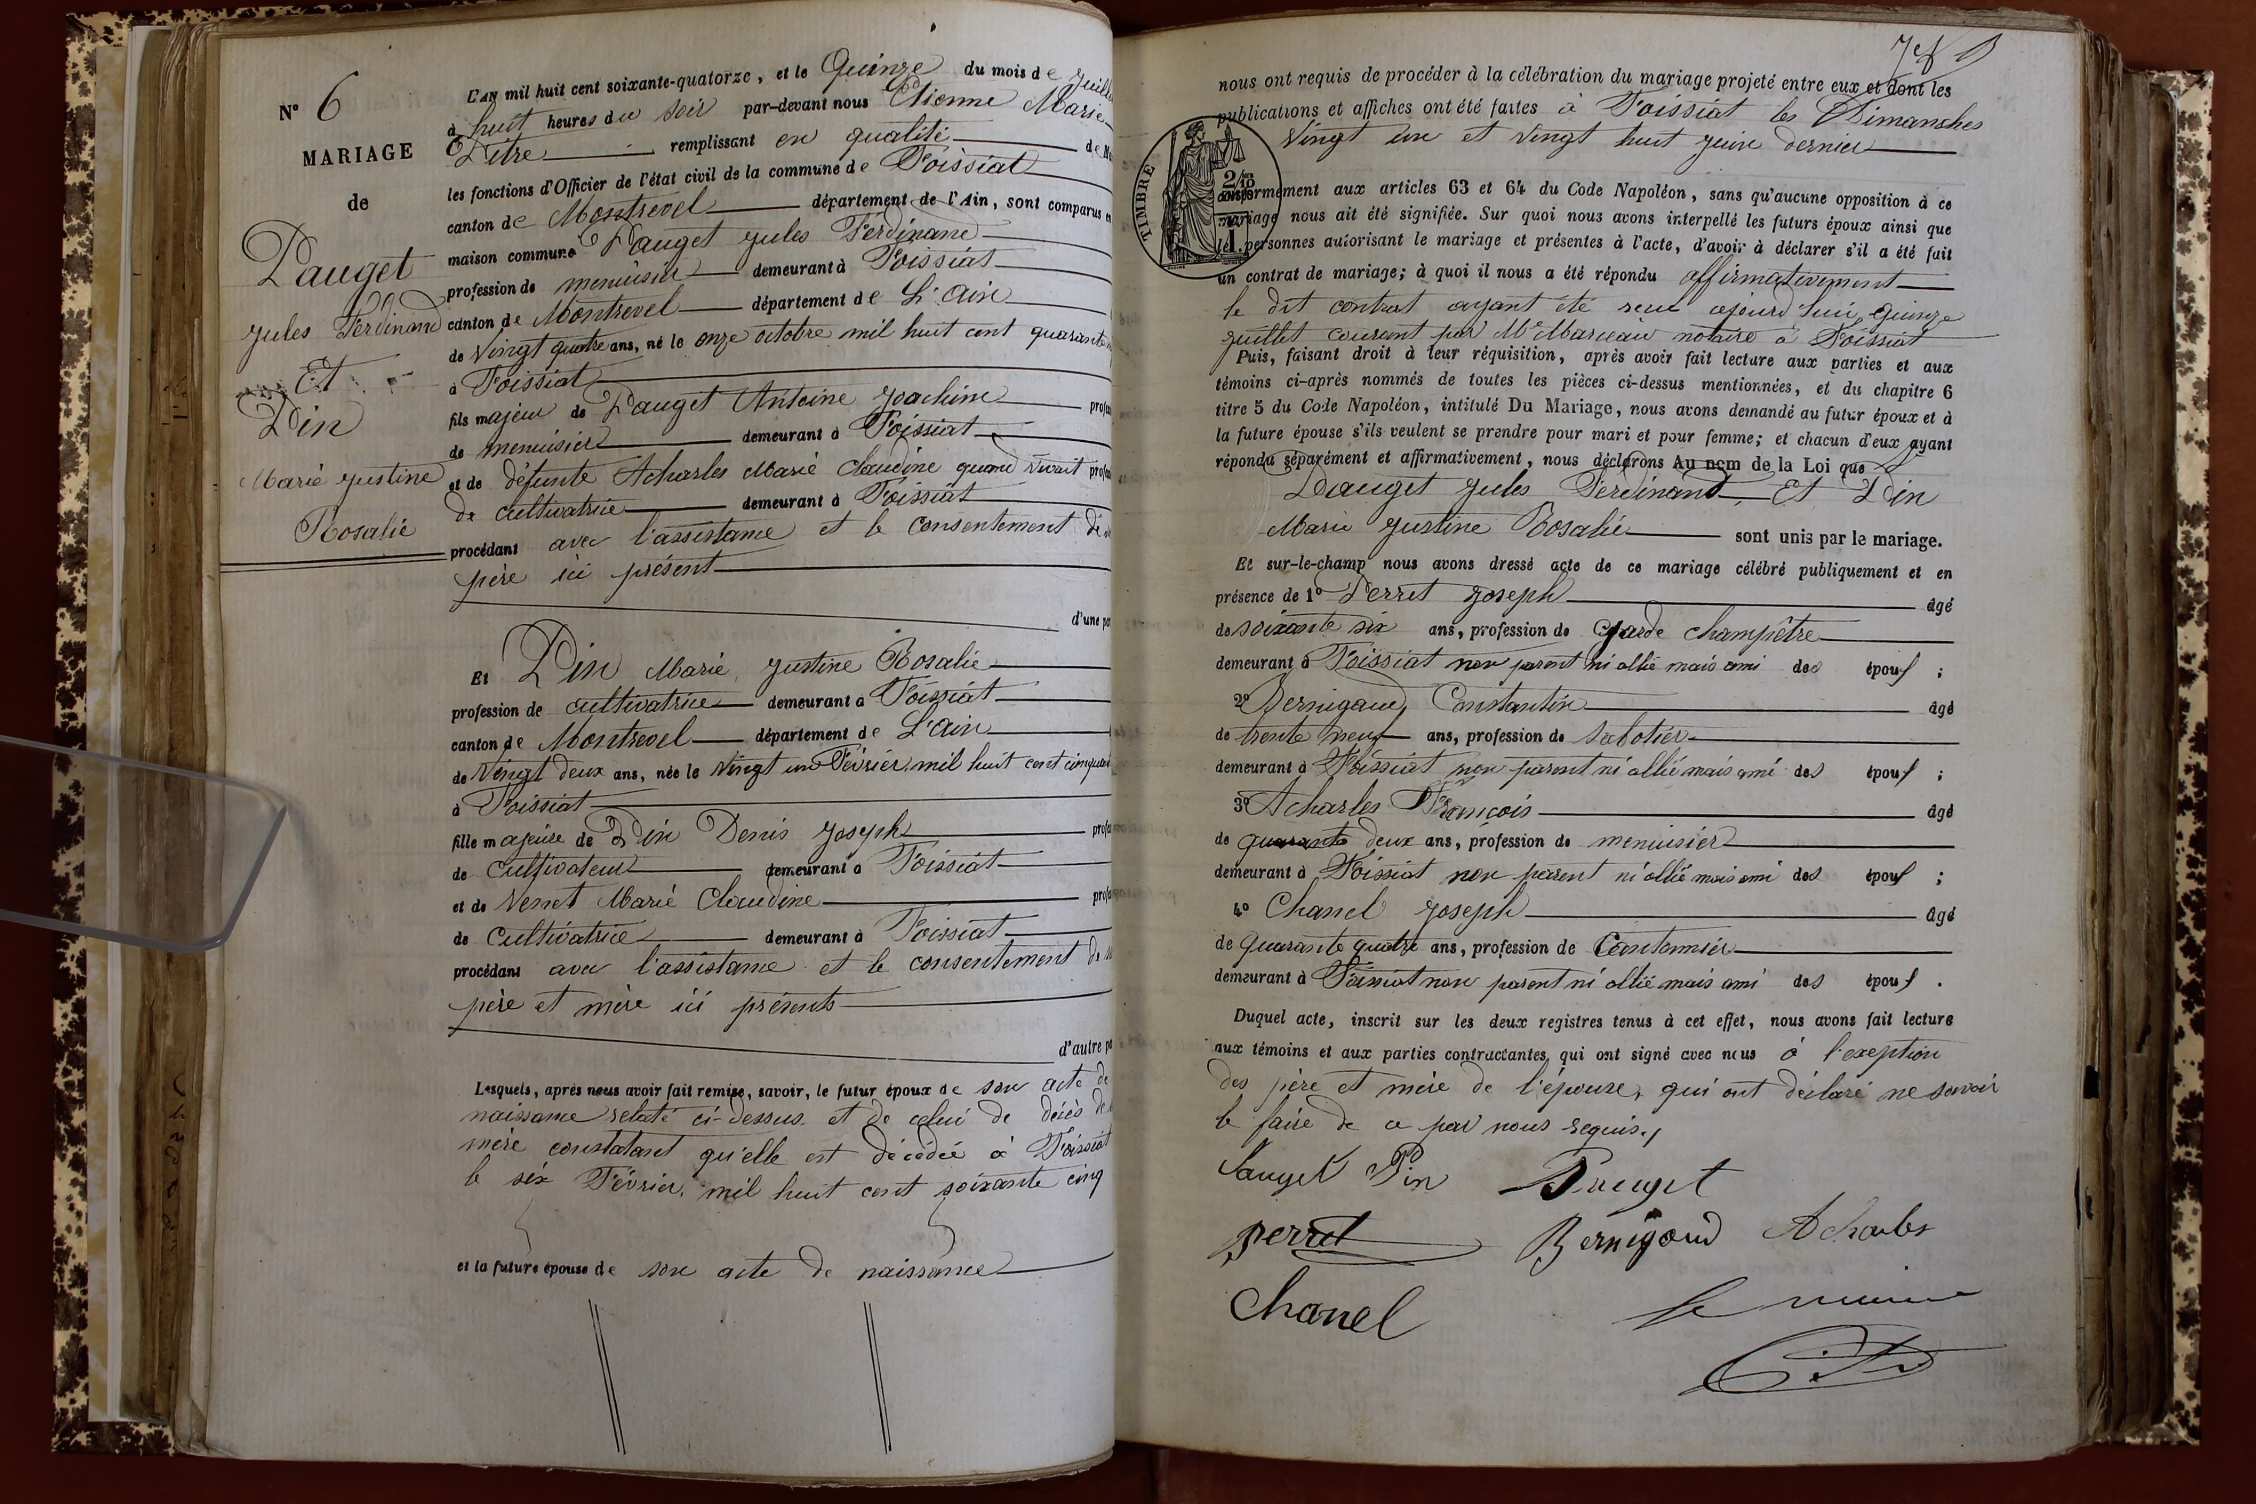 N° 6
MARIAGE
de
Pauget
Jules Ferdinand
Et
Pin
Marie Justine
Rosalie
L'AN mil huit cent soixante-quatorze, et le Quinze du mois de Juill
à huit heures du soir par-devant nous Etienne Marie
remplissant en qualité de M
les fonctions d'Officier de l'état civil de la commune de Foissiat
canton de Montrevel département de l'Ain, sont comparus en
maison commune Pauget Jules Ferdinand
profession de menuisier demeurant à Foissiat
canton de Montrevel département de L'Ain
de Vingt quatre ans, né le onze octobre mil huit cent quarante
à Foissiat
fils majeur de Pauget Antoine Joachim prof
de menuisier demeurant à Foissiat
et de défunte Acharles Marie Claudine quand vivait prof
de cultivatrice demeurant à Foissiat
procédant avec l'assistance et le consentement de
père ici présent
d'une pa
Et Pin Marie Justine Rosalie
profession de cultivatrice demeurant à Foissiat
canton de Montrevel département de L'Ain
de Vingt deux ans, née le Vingt un Février mil huit cent cinquan
à Foissiat
fille majeure de Pin Denis Joseph profe
de cultivateur demeurant à Foissiat
et de Venet Marie Claudine profe
de Cultivatrice demeurant à Foissiat
procédant avec l'assistance et le consentement de
père et mère ici présents
d'autre pa
Lesquels, après nous avoir fait remise, savoir, le futur époux de son acte de
naissance relaté ci-dessus et de celui de décès de
mère constatant qu'elle est décédée à Foissiat
le six Février mil huit cent soixante cinq
et la future épouse de son acte de naissance
nous ont requis de procéder à la célébration du mariage projeté entre eux et dont les
publications et affiches ont été faites à Foissiat les Dimanches
Vingt un et Vingt huit Juin dernier
TIMBRE
2/10
conformément aux articles 63 et 64 du Code Napoléon, sans qu'aucune opposition à ce
mariage nous ait été signifiée. Sur quoi nous avons interpellé les futurs époux ainsi que
les personnes autorisant le mariage et présentes à l'acte, d'avoir à déclarer s'il a été fait
un contrat de mariage; à quoi il nous a été répondu affirmativement
le dit contrat ayant été reçu cejourd'hui quinze
juillet courant par Me Marceau notaire à Foissiat
Puis, faisant droit à leur réquisition, après avoir fait lecture aux parties et aux
témoins ci-après nommés de toutes les pièces ci-dessus mentionnées, et du chapitre 6
titre 5 du Code Napoléon, intitulé Du Mariage, nous avons demandé au futur époux et à
la future épouse s'ils veulent se prendre pour mari et pour femme; et chacun d'eux ayant
répondu séparément et affirmativement, nous déclarons Au nom de la Loi que
Pauget Jules Ferdinand Et Pin
Marie Justine Rosalie sont unis par le mariage.
Et sur-le-champ nous avons dressé acte de ce mariage célébré publiquement et en
présence de 1° Perret Joseph âgé
de soixante six ans, profession de Garde champêtre
demeurant à Foissiat non parent ni allié mais ami des époux ;
2° Bernigaud Constantin âgé
de trente neuf ans, profession de sabotier
demeurant à Foissiat non parent ni allié mais ami des époux ;
3° Acharles François âgé
de quarante deux ans, profession de menuisier
demeurant à Foissiat non parent ni allié mais ami des époux ;
4° Chanel Joseph âgé
de Quarante quatre ans, profession de Cantonnier
demeurant à Foissiat non parent ni allié mais ami des époux .
Duquel acte, inscrit sur les deux registres tenus à cet effet, nous avons fait lecture
aux témoins et aux parties contractantes, qui ont signé avec nous à l'exeption
des père et mère de l'épouse, qui ont déclaré ne savoir
le faire de ce par nous requis.
Pauget Pin Pauget
Perret Bernigaud Acharles
Chanel Le maire